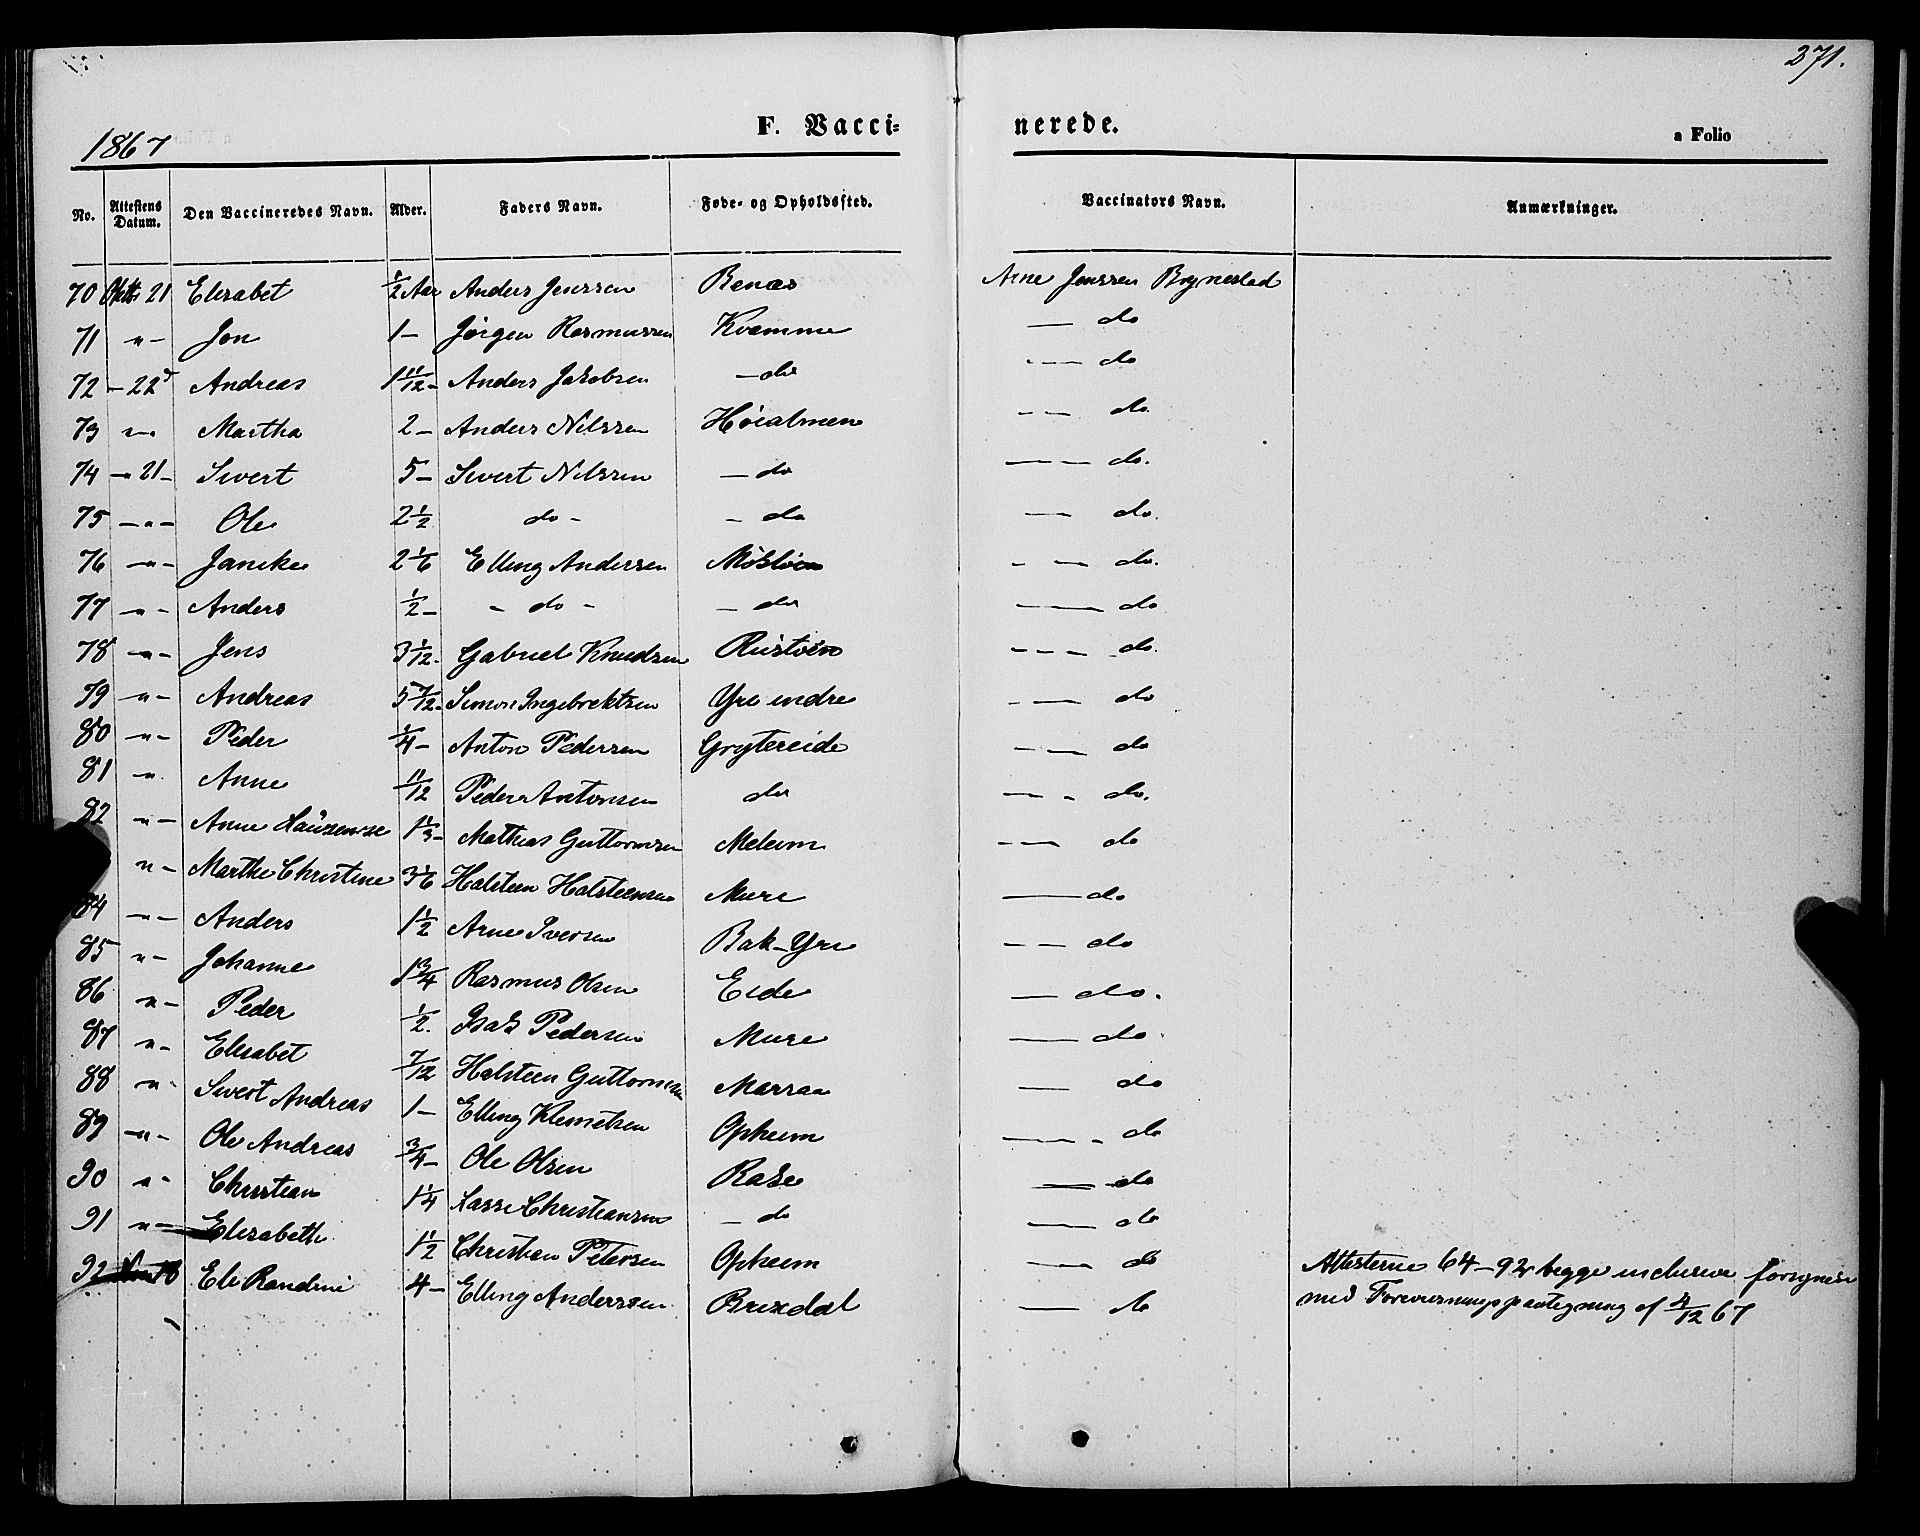 271.
1867
F. Vacci-nerede.
a Folio
No. Attestens Datum. Den Vaccineredes Navn. Alder. Faders Navn. Føde- og Opholdssted. Vaccinators Navn. Anmærkninger.
70 Oktb. 21 Elisabet 1/2 Aar Anders Jenssen Benæs Arne Jenssen Brynestad
71 " - Jon 1 - Jørgen Rasmussen Kvamme — do
72 - 22d Andreas 1 11/12 - Anders Jakobsen - do - — do
73 - " - Martha 2 - Anders Nilssen Høialmen - — do.
74 - 21 - Sivert 5 - Sivert Nilssen - do — — do.
75 - " - Ole 2 1/2 do - - do — do.
76 - " - Janike 2 1/6 Elling Andersen - — do.
77 - " - Anders 1/2 - - do - - do — do
78 - " - Jens 3 1/12 - Gabriel Knudsen Rustøen - - - do.
79 - " - Andreas 5 7/12 - Simon Ingebrektsen Yri indre - — do
80 - " - Peder 1/4 - Anton Pedersen Grytereide - — do
81 - " Anne 11/12 Peder Antonsen do — - do.
82 " - Anne 1 1/3 - Mathias Guttormsen Melum - — do
" - Marthe Christine 3 1/6 Halsteen Halsteensen Mure — do
84 - " - Anders 1 1/2 Arne Iversen Bak-Yri - - do
85 " - Johanne 1 3/4 Rasmus Olsen Eide — do.
86 " - Peder 1/2. Isak Pedersen Mure — do.
87 " - Elisabet 7/12 Halsteen Guttormsen Marraa — do
88 " - Sivert Andreas 1 - Elling Klemetsen Opheim — - do
89 - " - Ole Andreas 3/4 - Ole Olsen Rake — do
90 " - Christian 1 1/4 Lasse Christiansen - do — do
91 " - Elisabeth 1 1/2 Christian Petersen Opheim — do
92 Eli Randine 4 - Elling Anderssen Brixdal — do
Attesterne 64-92 begge inclusive
med af 4/12 67